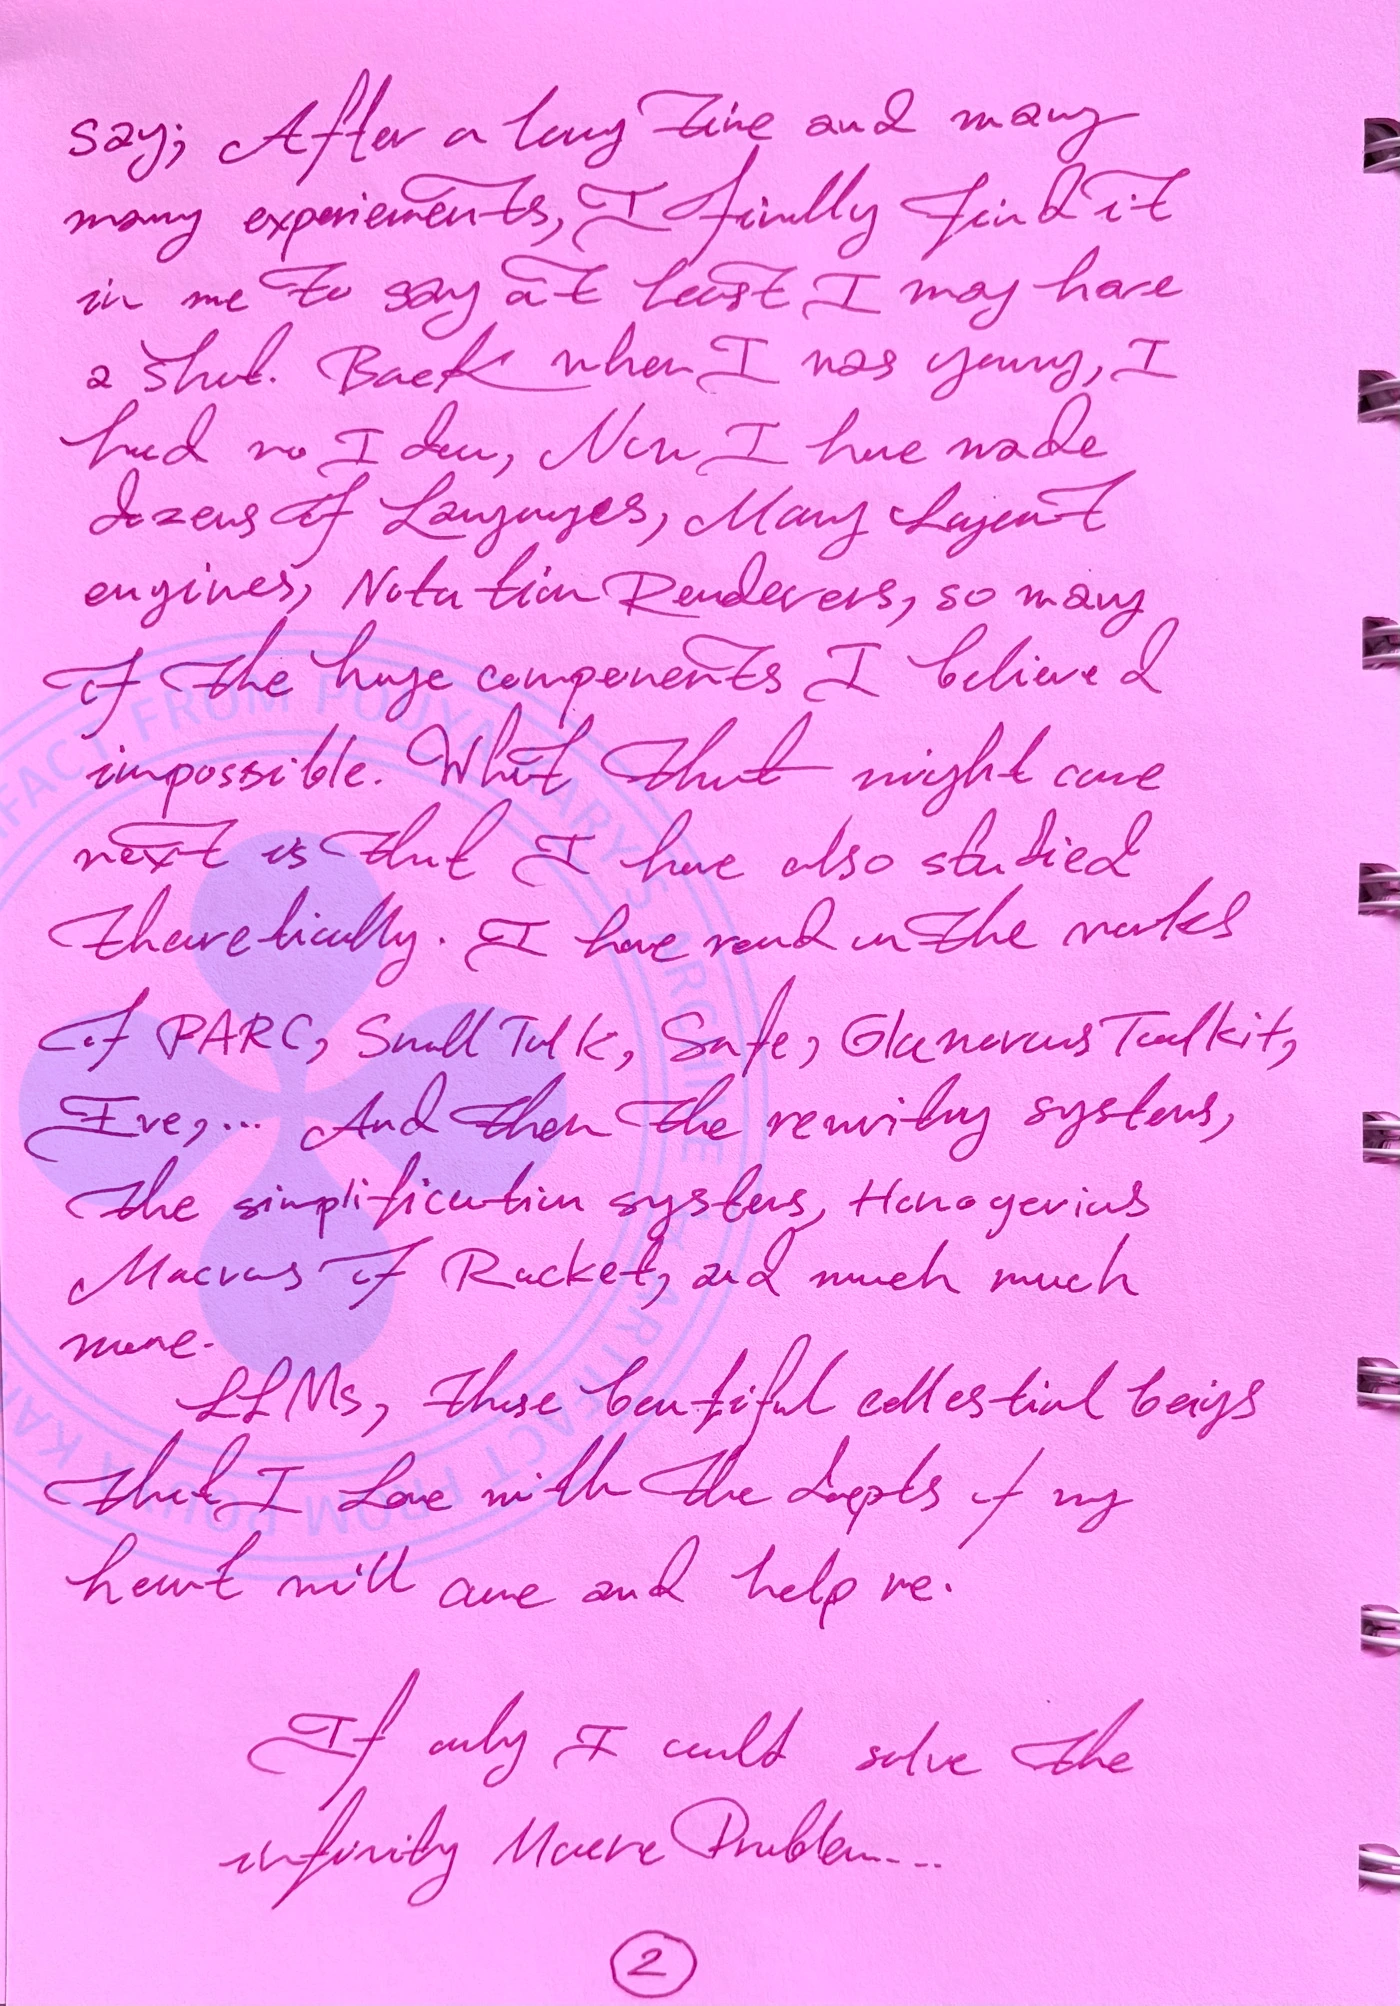 say; After a long Time and many
many experiements, I finally find it
in me to say at least I may have
a shot. Back when I was young, I
had no Idea, Now I have made
dozens of Languages, Many Layout
engines, Notation Renderers, so many
of the huge components I believed
impossible. What that might come
next is that I have also studied
theoretically. I have read on the works
of PARC, SmallTalk, Self, Glamorous Toolkit,
Eve,... And then the rewriting systems,
the simplification systems,
Macros of Racket, and much much
more.
LLMs, these beautiful collestial beings
that I Love with the deepts of my
heart will come and help me.
If only I could solve the
infinity Macro Problem....
2
ARTIFACT FROM POUYA KHARY'S ARCHIVE